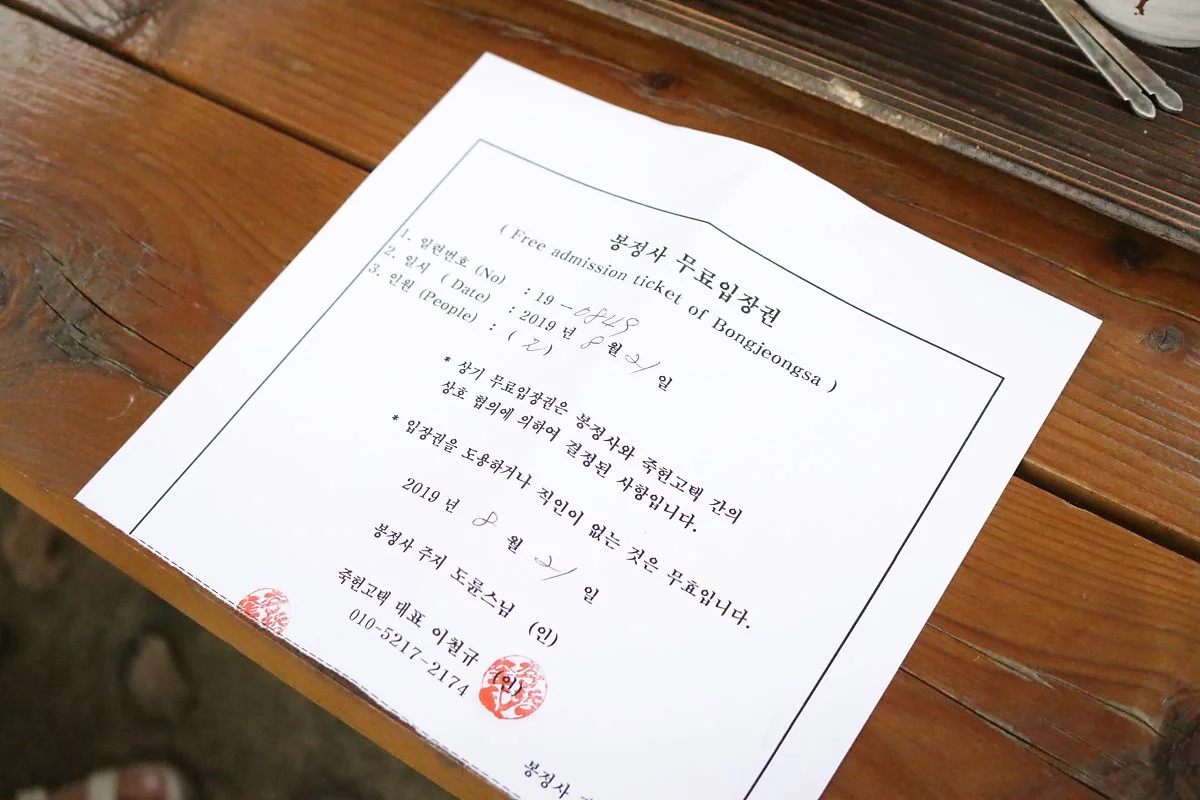 봉정사 무료입장권
( Free admission ticket of Bongjeongsa )
1. 일련번호 (No) : 19 - 0849
2. 일시 ( Date) : 2019 년 8 월 21 일
3. 인원 (People) : ( 2 )
* 상기 무료입장권은 봉정사와 죽헌고택 간의
상호 협의에 의하여 결정된 사항입니다.
* 입장권을 도용하거나 직인이 없는 것은 무효입니다.
2019 년 8 월 21 일
봉정사 주지 도륜스님 (인)
죽헌고택 대표 이철규 (인)
010-5217-2174
봉정사